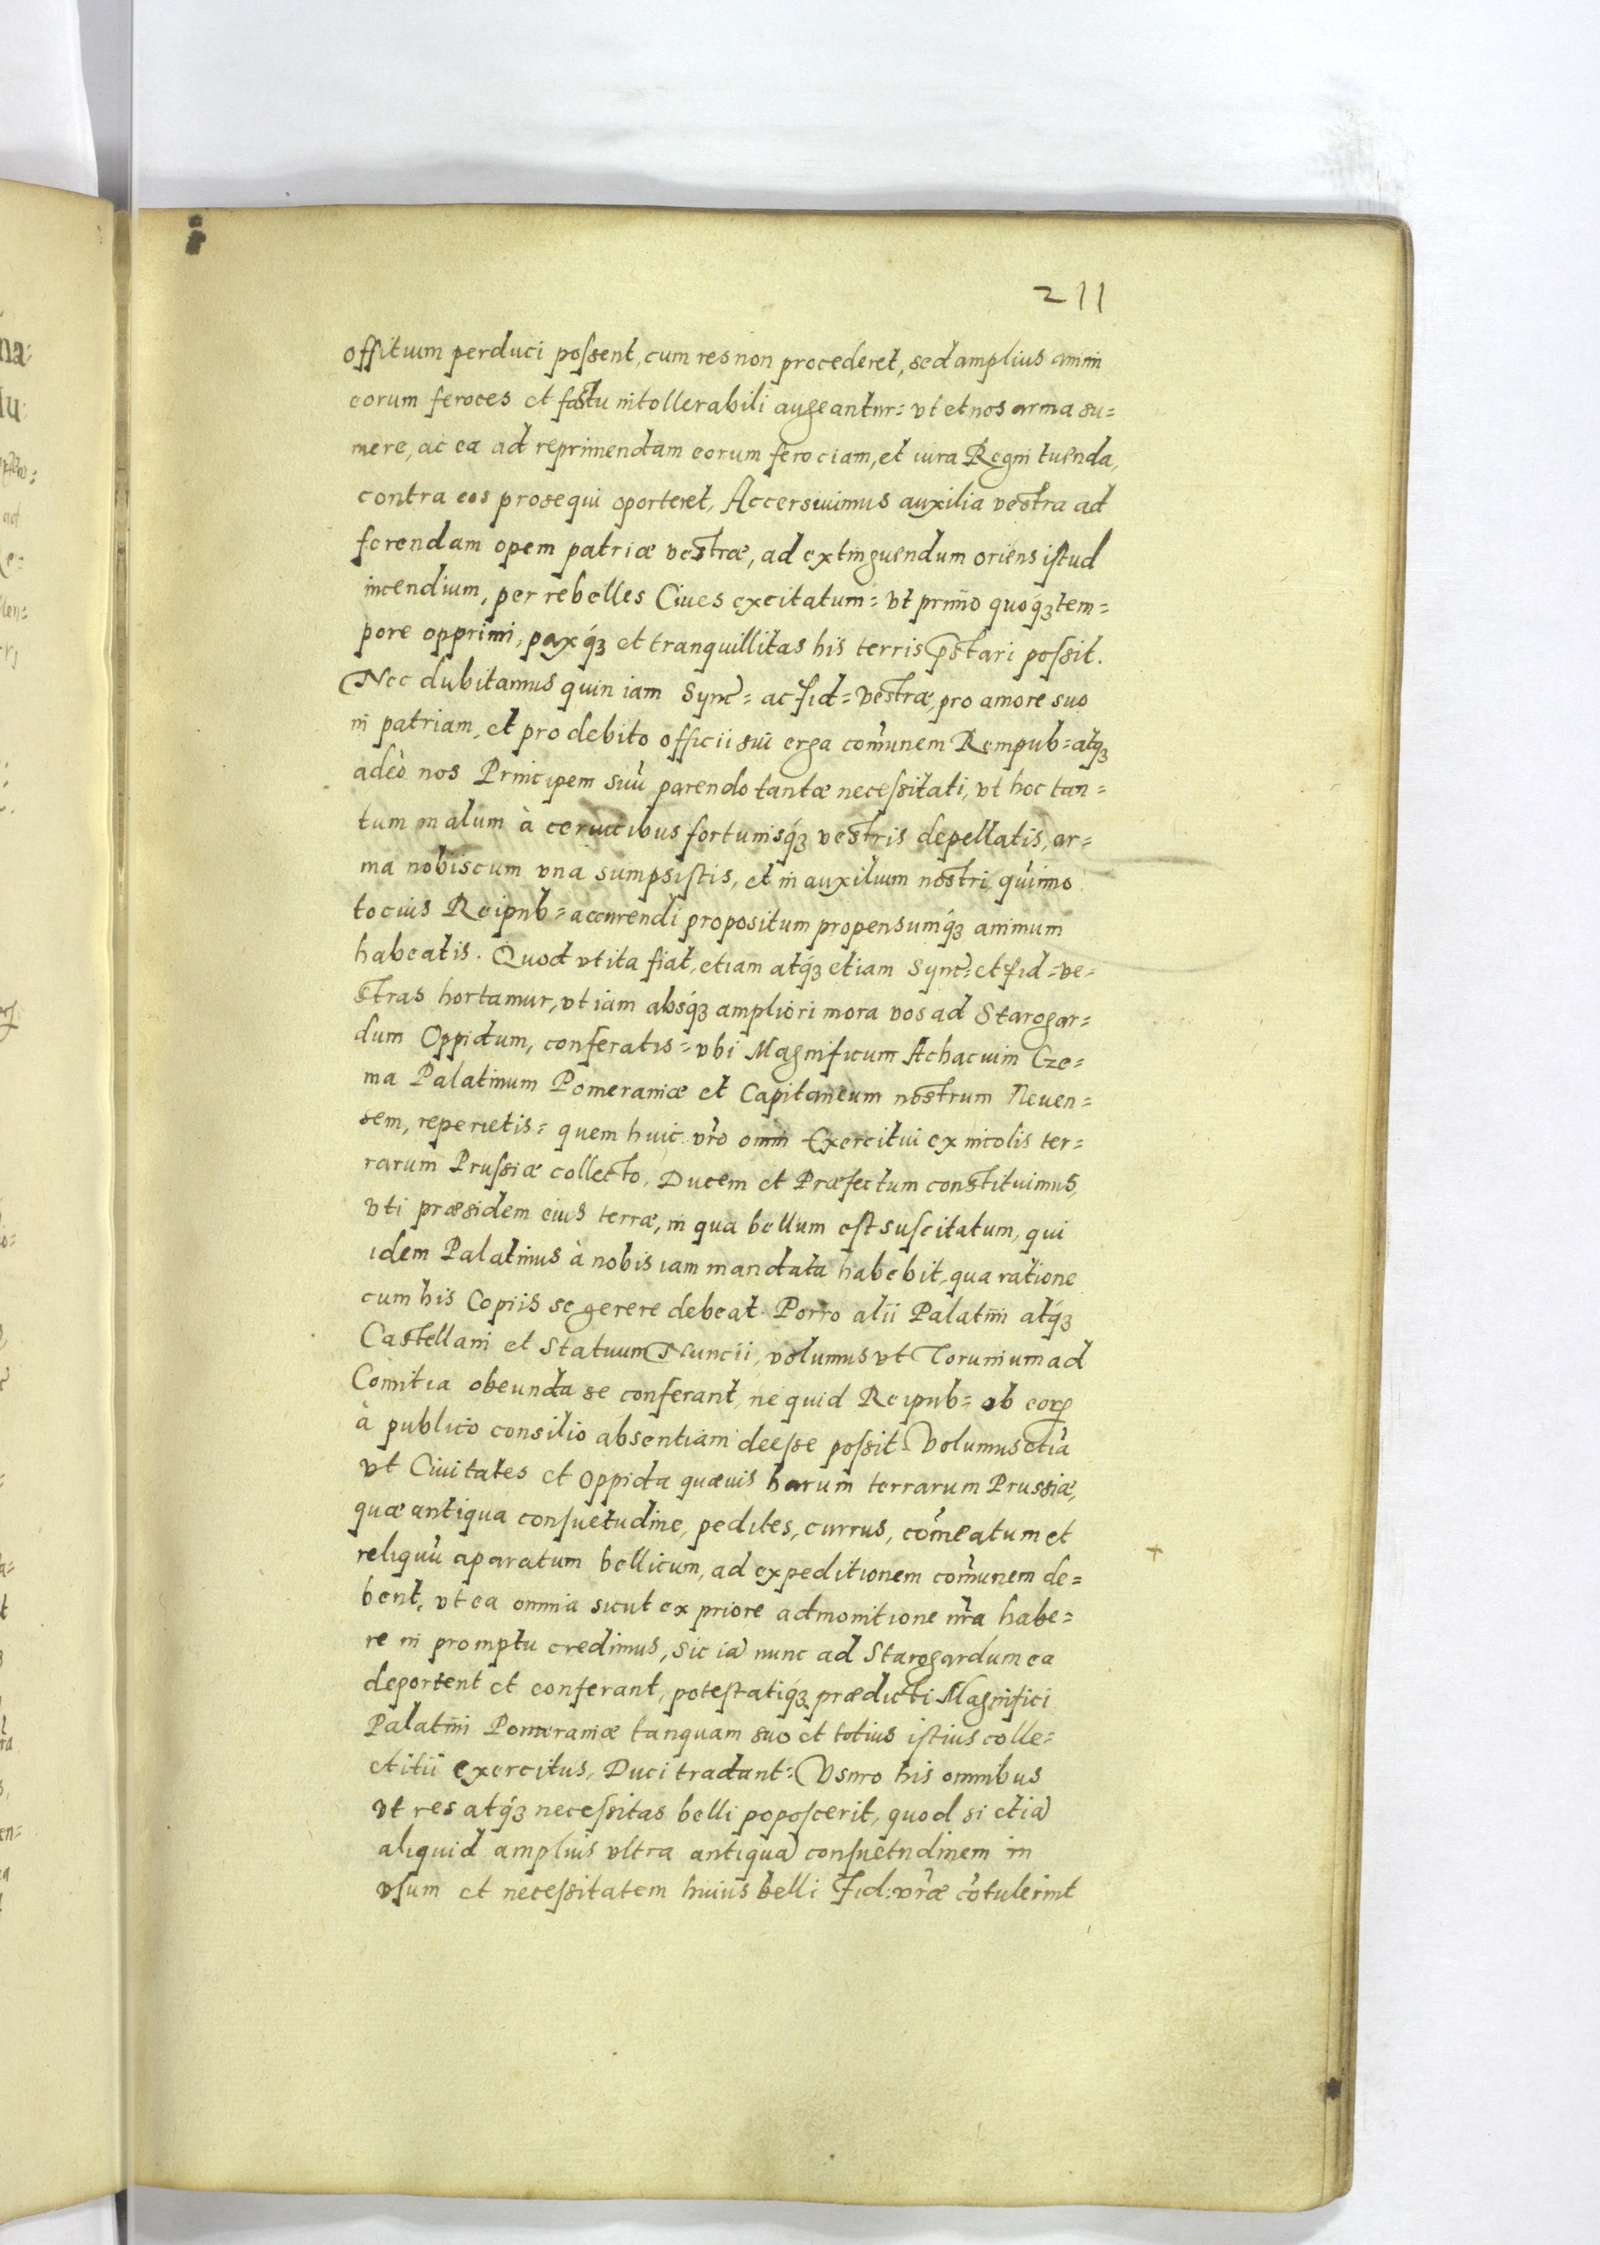 211
offitium perduci possent, cum res non procederet, sed amplius animi
eorum feroces et fastu intollerabili augeantur= vt et nos arma su=
mere, ac ea ad reprimendam eorum ferociam, et iura Regni tuenda,
contra eos prosequi oporteret, Accersiuimus auxilia vestra ad
ferendam opem patriæ vestræ, ad extinguendum oriens istud
incendium, per rebelles Ciues excitatum= vt primo quoq́ꝫ tem=
pore opprimi, paxq́ꝫ et tranquillitas his terris p̄stari possit.
Nec dubitamus quin iam Sync̃= ac fid= vestræ, pro amore suo
in patriam, et pro debito officii sui erga com̃unem Rempub= atq́ꝫ
adeò nos Principem suũ parendo tantæ necessitati, vt hoc tan=
tum malum à ceruicibus fortunisq́ꝫ vestris depellatis, ar=
ma nobiscum vna sumpsistis, et in auxilium nostri quinimo
tocius Reipub= accurendi propositum propensumq́ꝫ animum
habeatis. Quod vt ita fiat, etiam atq́ꝫ etiam Sync̃= et fid= ve=
stras hortamur, vt iam absq́ꝫ ampliori mora vos ad Starogar=
dum Oppidum, conferatis= vbi Magnificum Achacium Cze=
ma Palatinum Pomeraniæ et Capitaneum nostrum Neuen=
sem, reperietis= quem huic vr̃o omni Exercitui ex incolis ter=
rarum Prussiæ collecto, Ducem et Præfectum constituimus,
vti præsidem eius terræ, in qua bellum est suscitatum, qui
idem Palatinus à nobis iam mandata habebit, qua ratione
cum his Copiis se gerere debeat. Porro alii Palatini atq́ꝫ
Castellani et Statuum Nuncii, volumus vt Torunium ad
Comitia obeunda se conferant, ne quid Reipub= ob eoꝝ
à publico consilio absentiam deesse possit. Volumus etiã
vt Ciuitates et Oppida quæuis harum terrarum Prussiæ,
quæ antiqua consuetudine, pedites, currus, com̃eatum et
reliquũ aparatum bellicum, ad expeditionem com̃unem de=
bent, vt ea omnia sicut ex priore admonitione nr̃a habe=
re in promptu credimus, sic iã nunc ad Starogardum ea
deportent et conferant, potestatiq́ꝫ prædicti Magnifici
Palatini Pomeraniæ tanquam suo et totius istius colle=
ctitii exercitus, Duci tradant= Vsuro his omnibus
vt res atq́ꝫ necessitas belli poposcerit, quod si etiã
aliquid amplius vltra antiquã consuetudinem in
vsum et necessitatem huius belli Fid: vr̃æ cõtulerint